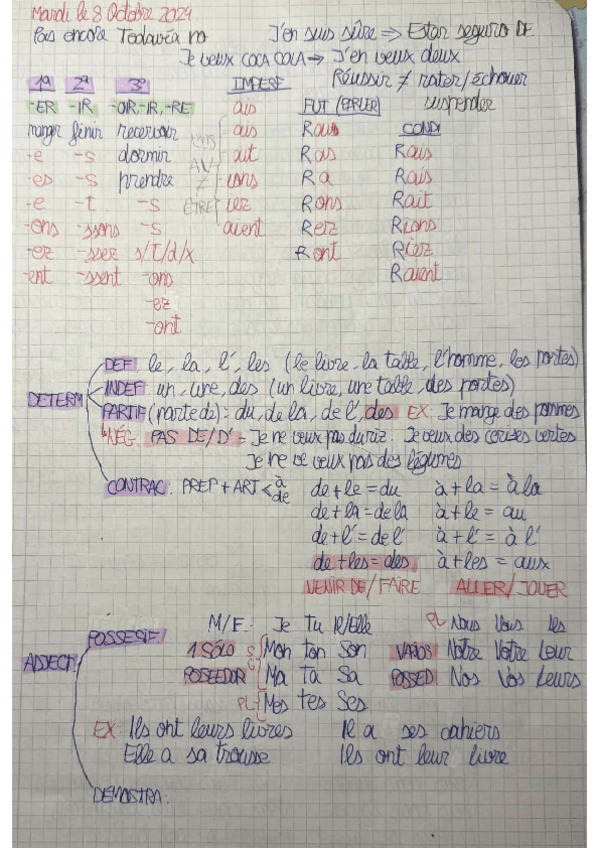 Mardi le 8 Octobre 2024
Pas encore Todavía no J'en suis sûre => Estar seguro DE
Je veux COCA COLA → J'en veux deux
1ª 2ª 3ª IMPERF Réussir ≠ rater/échouer
-ER -IR -OIR, -IR, -RE ais FUT (PARLER) suspender
manger finir recevoir ais Rai CONDI
-e -s dormir ait Ras Rais
-es -s prendre ions Ra Rais
-e -t -s iez Rons Rait
-ons -ssons -s aient Rez Rions
-ez -ssez s/t/d/x Ront Riez
-ent -ssent -ons Raient
-ez
-ont
AV
≠
ÊTRE
DETERM
DEF: le, la, l', les (le livre, la table, l'homme, les portes)
INDEF: un, une, des (un livre, une table, des portes)
PARTIF (parte de): du, de la, de l', des EX: Je mange des pommes
NÉG: PAS DE/D' = Je ne veux pas du riz. Je veux des cerises vertes
Je ne ve veux pas des légumes
CONTRAC: PREP + ART < à de de + le = du à + la = à la
de + la = de la à + le = au
de + l' = de l' à + l' = à l'
de + les = des à + les = aux
VENIR DE/FAIRE ALLER/JOUER
ADJECT
POSSESIF M/F: Je tu Il/Elle PL Nous Vous Ils
1 SÓLO S Mon ton Son VARIOS Notre Votre Leur
POSEEDOR Ma Ta Sa POSSED Nos Vos Leurs
PL Mes tes Ses
EX: Ils ont leurs livres Il a ses cahiers
Elle a sa trousse Ils ont leur livre
DEMOSTRA: